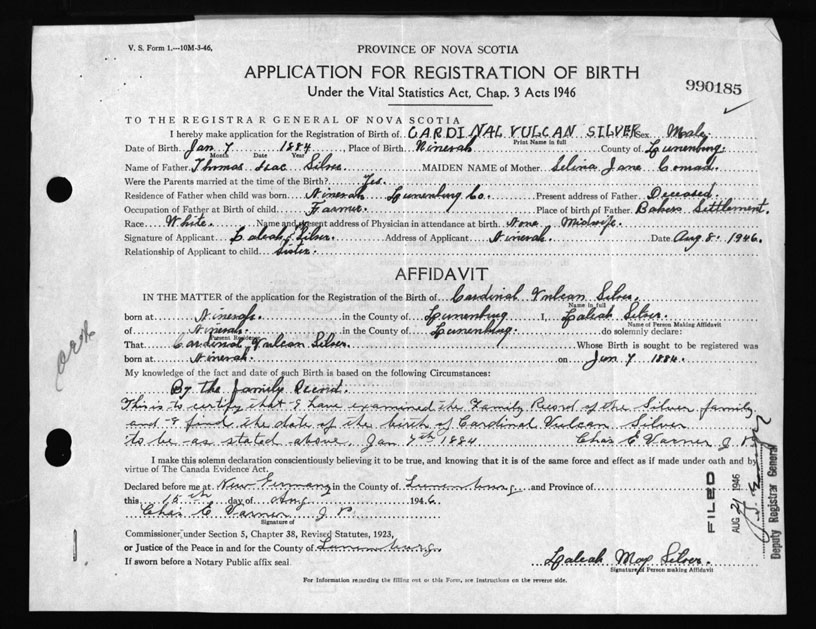 V. S. Form 1.—10M-3-46.
PROVINCE OF NOVA SCOTIA
APPLICATION FOR REGISTRATION OF BIRTH
990185
Under the Vital Statistics Act, Chap. 3 Acts 1946
TO THE REGISTRAR GENERAL OF NOVA SCOTIA
I hereby make application for the Registration of Birth of CARDINAL VULCAN SILVER Sex Male
Print Name in full
Date of Birth Jan 7 1884, Place of Birth Ninevah County of Lunenburg
Month Date Year
Name of Father Thomas Isac Silver MAIDEN NAME of Mother Selina Jane Conrad
Were the Parents married at the time of the Birth? Yes.
Residence of Father when child was born Ninevah Lunenburg Co. Present address of Father Deceased
Occupation of Father at Birth of child Farmer. Place of birth of Father Bakers Settlement.
Race White. Name and present address of Physician in attendance at birth None Midwife.
Signature of Applicant Laleah Silver. Address of Applicant Ninevah. Date Aug 8. 1946.
Relationship of Applicant to child Sister.
AFFIDAVIT
IN THE MATTER of the application for the Registration of the Birth of Cardinal Vulcan Silver.
Name in full
born at Ninevah. in the County of Lunenburg I, Laleah Silver.
Name of Person Making Affidavit
of Ninevah. in the County of Lunenburg. do solemnly declare:
That Cardinal Vulcan Silver. Whose Birth is sought to be registered was
born at Ninevah. on Jan 7 1884.
My knowledge of the fact and date of such Birth is based on the following Circumstances:
By the family Record.
This is to certify that I have examined the Family Record of the Silver family
and I find the date of the birth of Cardinal Vulcan Silver
to be as stated above, Jan 7th 1884. Chas E Varner J. P.
I make this solemn declaration conscientiously believing it to be true, and knowing that it is of the same force and effect as if made under oath and by
virtue of The Canada Evidence Act.
Declared before me at New Germany in the County of Lunenburg and Province of
this 15th day of Aug 1946.
Chas E Varner J. P.
Signature of
Commissioner under Section 5, Chapter 38, Revised Statutes, 1923,
or Justice of the Peace in and for the County of Lunenburg
If sworn before a Notary Public affix seal.
Laleah May Silver.
Signature of Person making Affidavit
For Information regarding the filling out of this Form, see Instructions on the reverse side.
FILED
AUG 21 1946
Deputy Registrar General